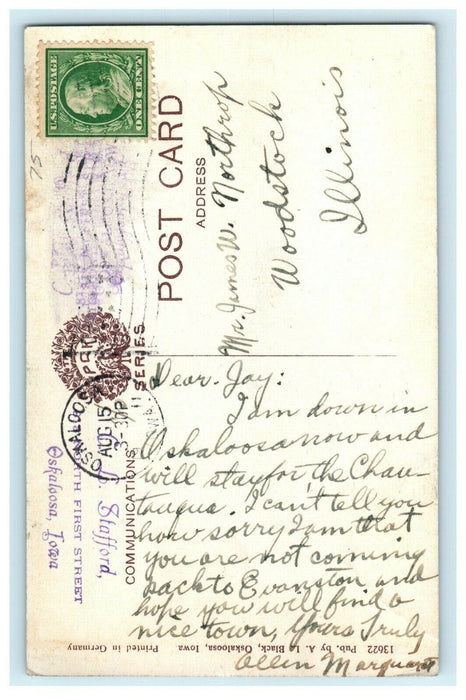 U.S. POSTAGE
ONE CENT
75
POST CARD
ADDRESS
Mr. James W. Northrop
Woodstock
Illinois
SERIES
COMMUNICATIONS
OSKALOOSA
AUG 15
3-30P
11
Stafford,
TH FIRST STREET
Oskaloosa, Iowa
Dear Jay:
I am down in
Oskaloosa now and
will stay for the Chau-
tauqua. I can't tell you
how sorry I am that
you are not coming
back to Evanston and
hope you will find a
nice town, Yours Truly
Allen Marquardt
13622 Pub. by A. L. Black, Oskaloosa, Iowa
Printed in Germany